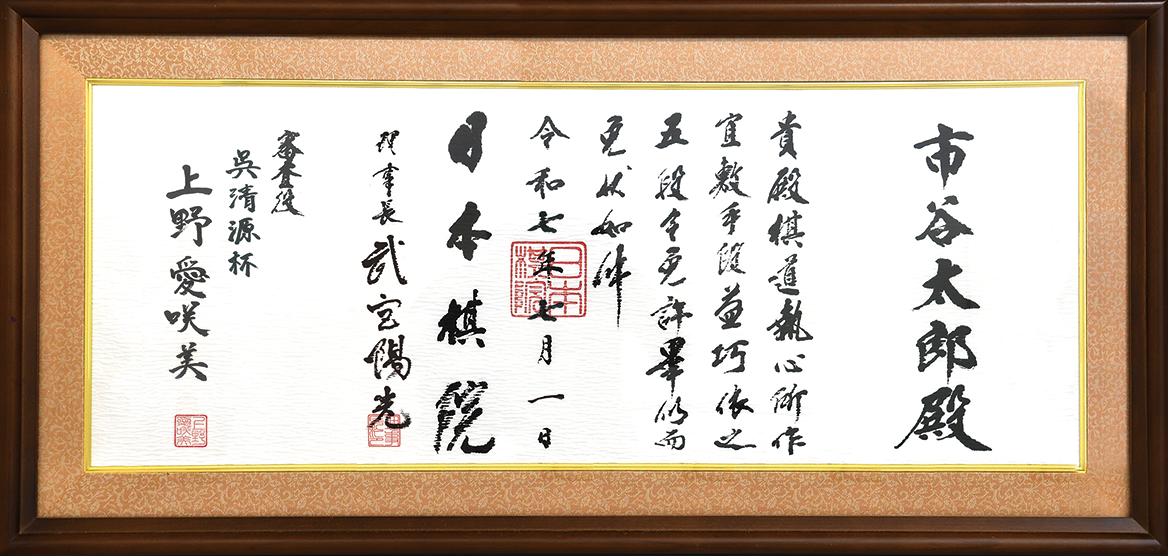 市谷太郎殿
貴殿棋道執心所作
宜敷手段益巧依之
五段令免許畢仍而
免状如件
令和七年七月一日
日本棋院
理事長 武宮陽光
審査役
呉清源杯
上野愛咲美
日本棋院